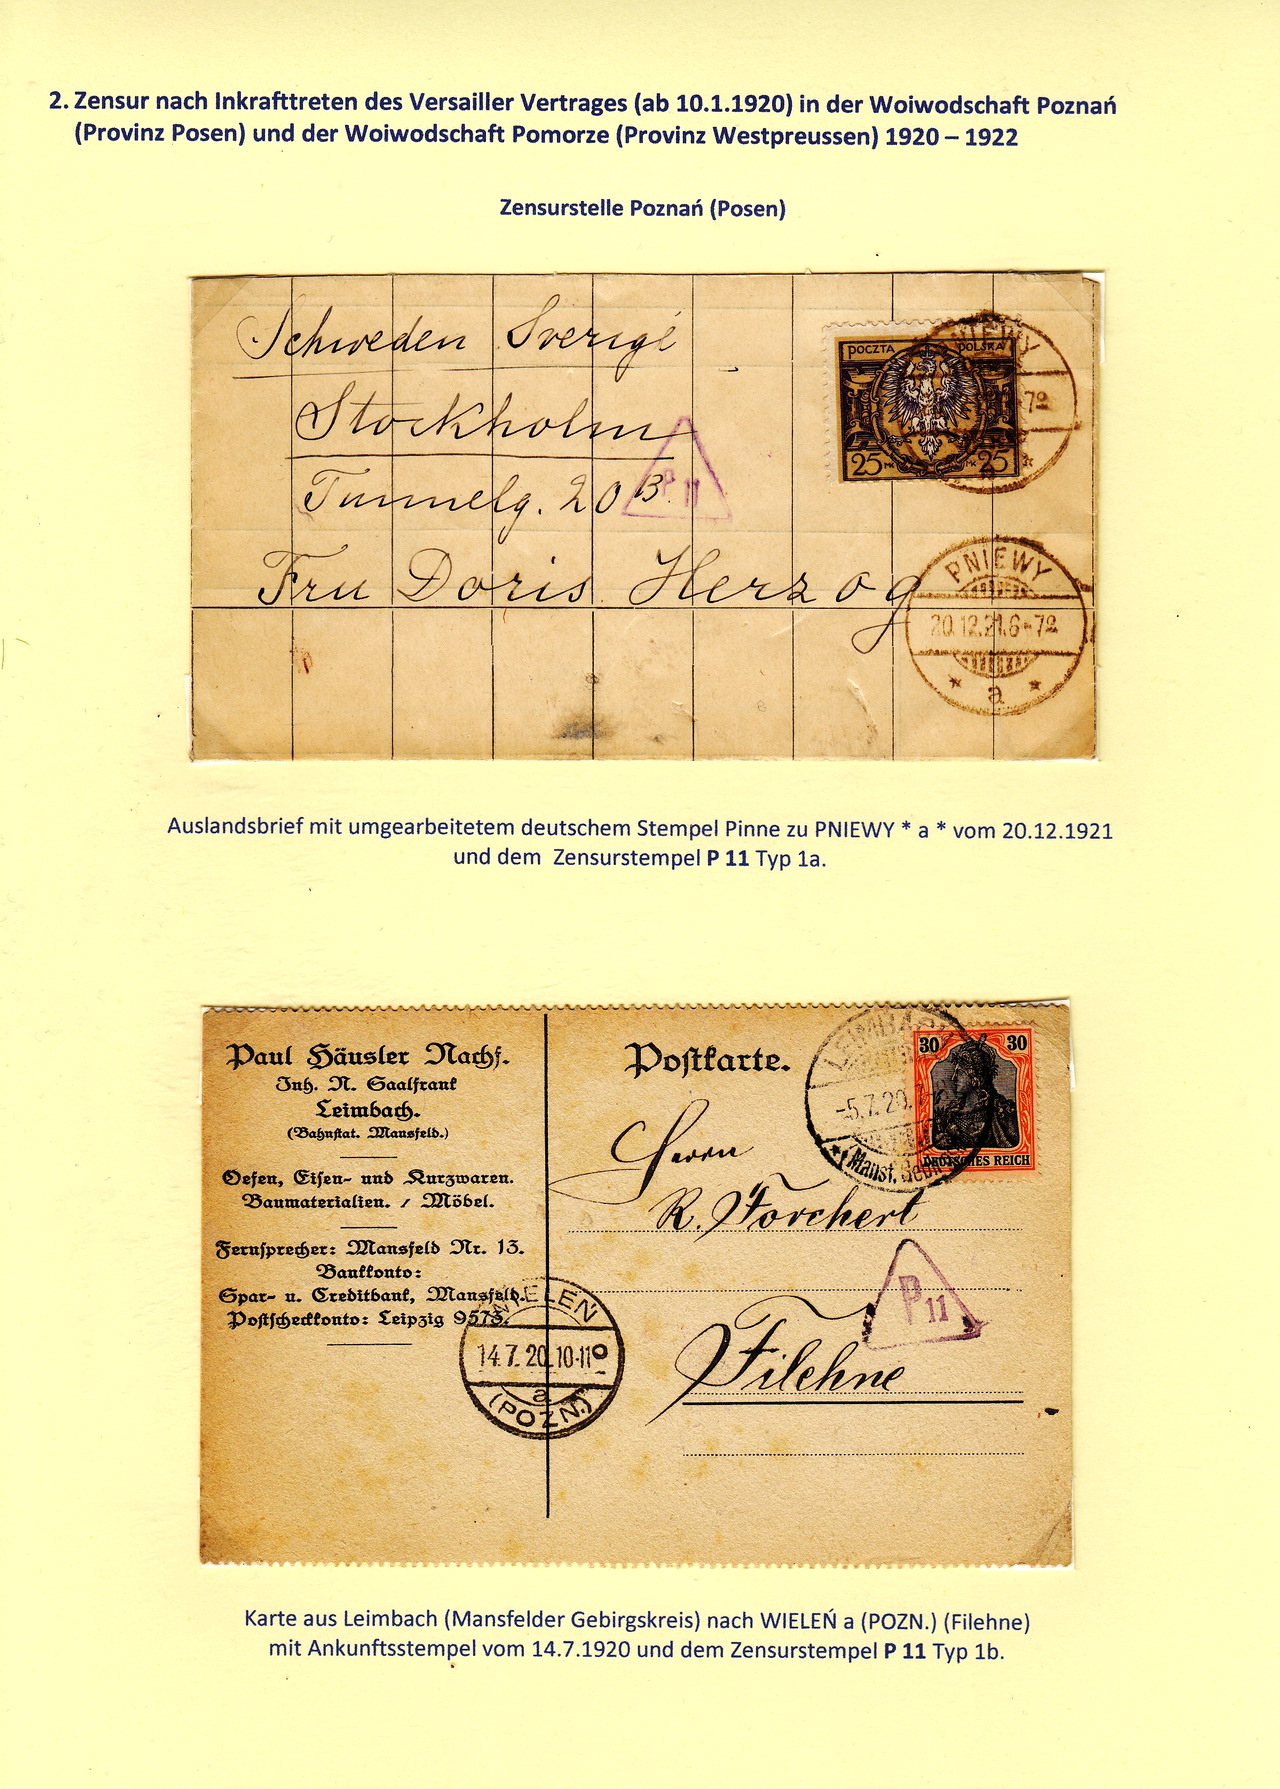 2. Zensur nach Inkrafttreten des Versailler Vertrages (ab 10.1.1920) in der Woiwodschaft Poznań
(Provinz Posen) und der Woiwodschaft Pomorze (Provinz Westpreussen) 1920 – 1922
Zensurstelle Poznań (Posen)
Schweden Sverige
Stockholm
Tunnelg. 20 B.
Fru Doris Herzog
POCZTA POLSKA
25 MK MK 25
PNIEWY
P 11
PNIEWY
20.12.21.6-7a
* a *
Auslandsbrief mit umgearbeitetem deutschem Stempel Pinne zu PNIEWY * a * vom 20.12.1921
und dem Zensurstempel P 11 Typ 1a.
Paul Häusler Nachf.
Inh. N. Saalfrank
Leimbach.
(Bahnstat. Mansfeld.)
Oefen, Eisen- und Kurzwaren.
Baumaterialien. / Möbel.
Fernsprecher: Mansfeld Nr. 13.
Bankkonto:
Spar- u. Creditbank, Mansfeld.
Postscheckkonto: Leipzig 9573.
Postkarte.
LEIMBACH
-5.7.20.7-
30 30
DEUTSCHES REICH
Herrn
R. Forchert
Filehne
P 11
WIELEŃ
14.7.20.10-11
a
(POZN.)
Karte aus Leimbach (Mansfelder Gebirgskreis) nach WIELEŃ a (POZN.) (Filehne)
mit Ankunftsstempel vom 14.7.1920 und dem Zensurstempel P 11 Typ 1b.